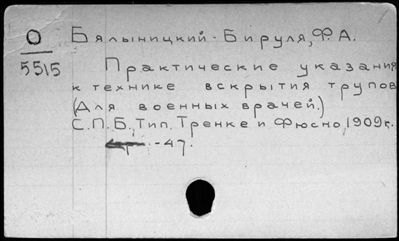 О Бялыницкий-Бируля, Ф. А.
5515
Практические указания
к технике вскрытия трупов
(Для военных врачей.)
С.П.Б., Тип. Тренке и Фюсно, 1909г.
-47.